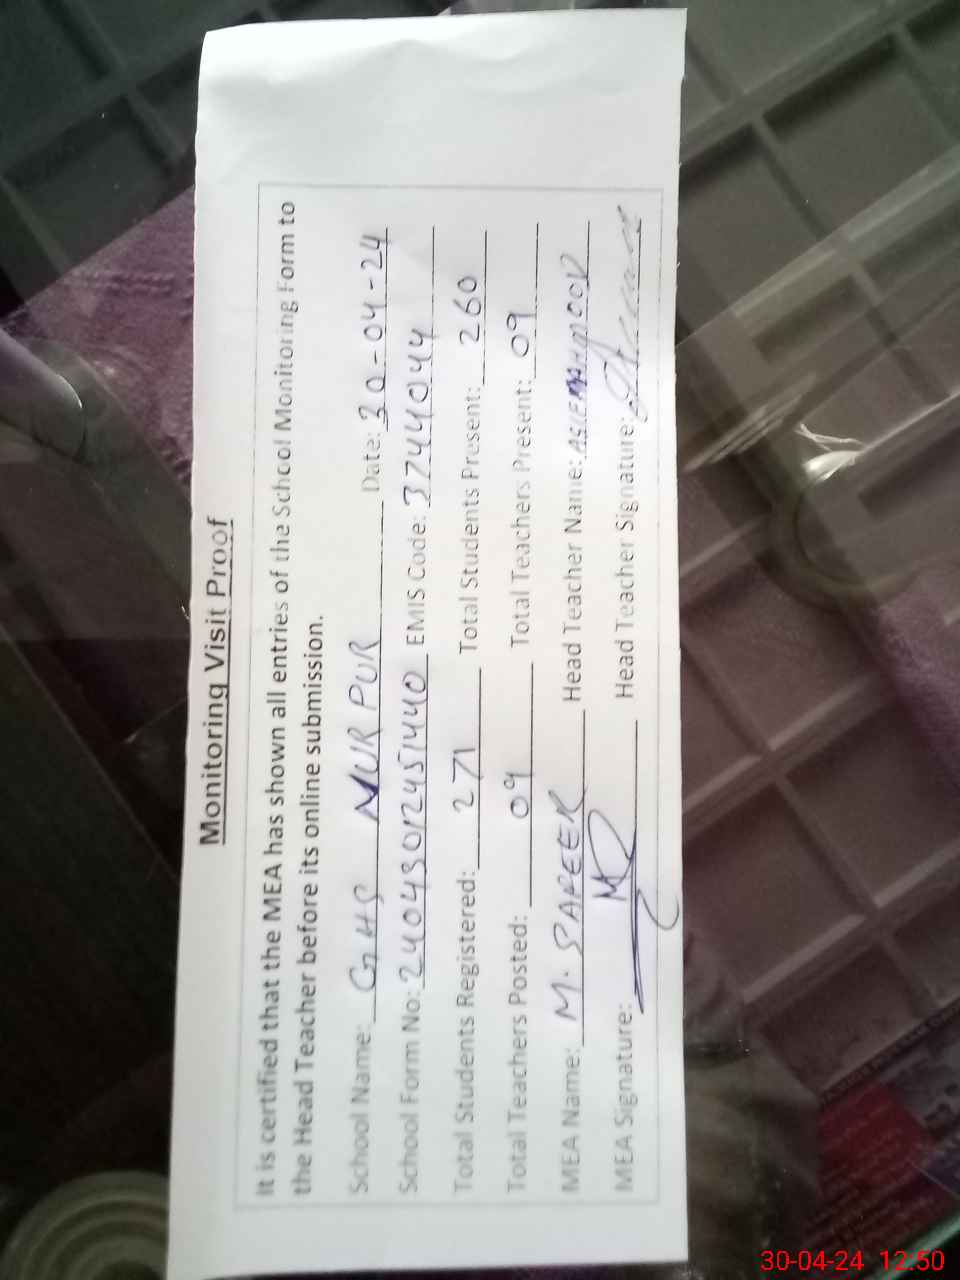 Monitoring Visit Proof
It is certified that the MEA has shown all entries of the School Monitoring Form to
the Head Teacher before its online submission.
School Name: GHS NUR PUR Date: 30-04-24
School Form No: EMIS Code: 37444044
Total Students Registered: 271 Total Students Present: 260
Total Teachers Posted: 09 Total Teachers Present: 09
MEA Name: M. Head Teacher Name:
MEA Signature: Head Teacher Signature:
30-04-24 12:50